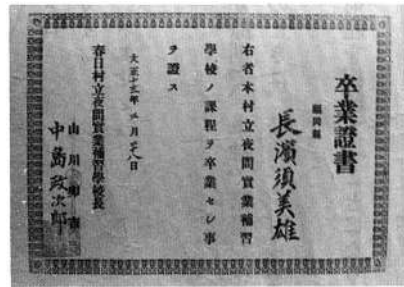 卒業證書
福岡縣
長濱須美雄
右者本村立夜間實業補習
學校ノ課程ヲ卒業セシ事
ヲ證ス
大正十三年三月廿八日
春日村立夜間實業補習學校長
中島政次郎